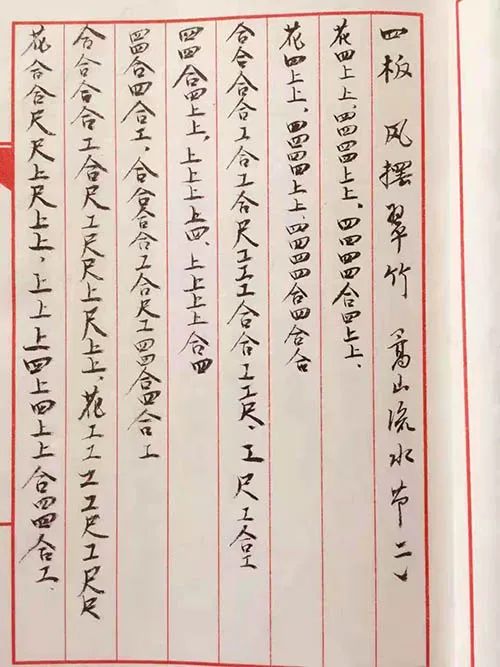 四板 风摆翠竹 高山流水节二、
花四上上、四四四四上上、四四四四合四上上、
花四上上、四四四四上上、四四四四合四合合
合合合合工合工合尺工工工合合工工尺、工尺工合工
四四合四上上、上上上上四、上上上上合四
四四合四合工、合合合合工合尺工四四合四合工
合合合合工合尺工尺尺上尺上上、花工工工工尺工尺尺
花合合尺尺上尺上上、上上上四上四上上合四四合工、